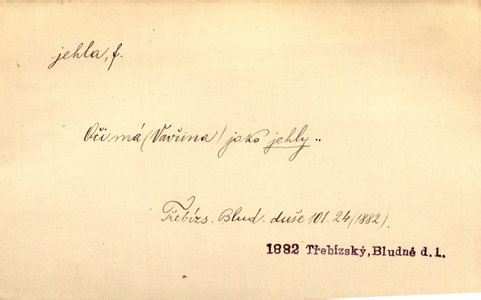 jehla, f.
Oči má (Vavřina) jako jehly..
Třebízs. Blud. duše 101.24 (1882).
1882 Třebízský, Bludné d. 1.